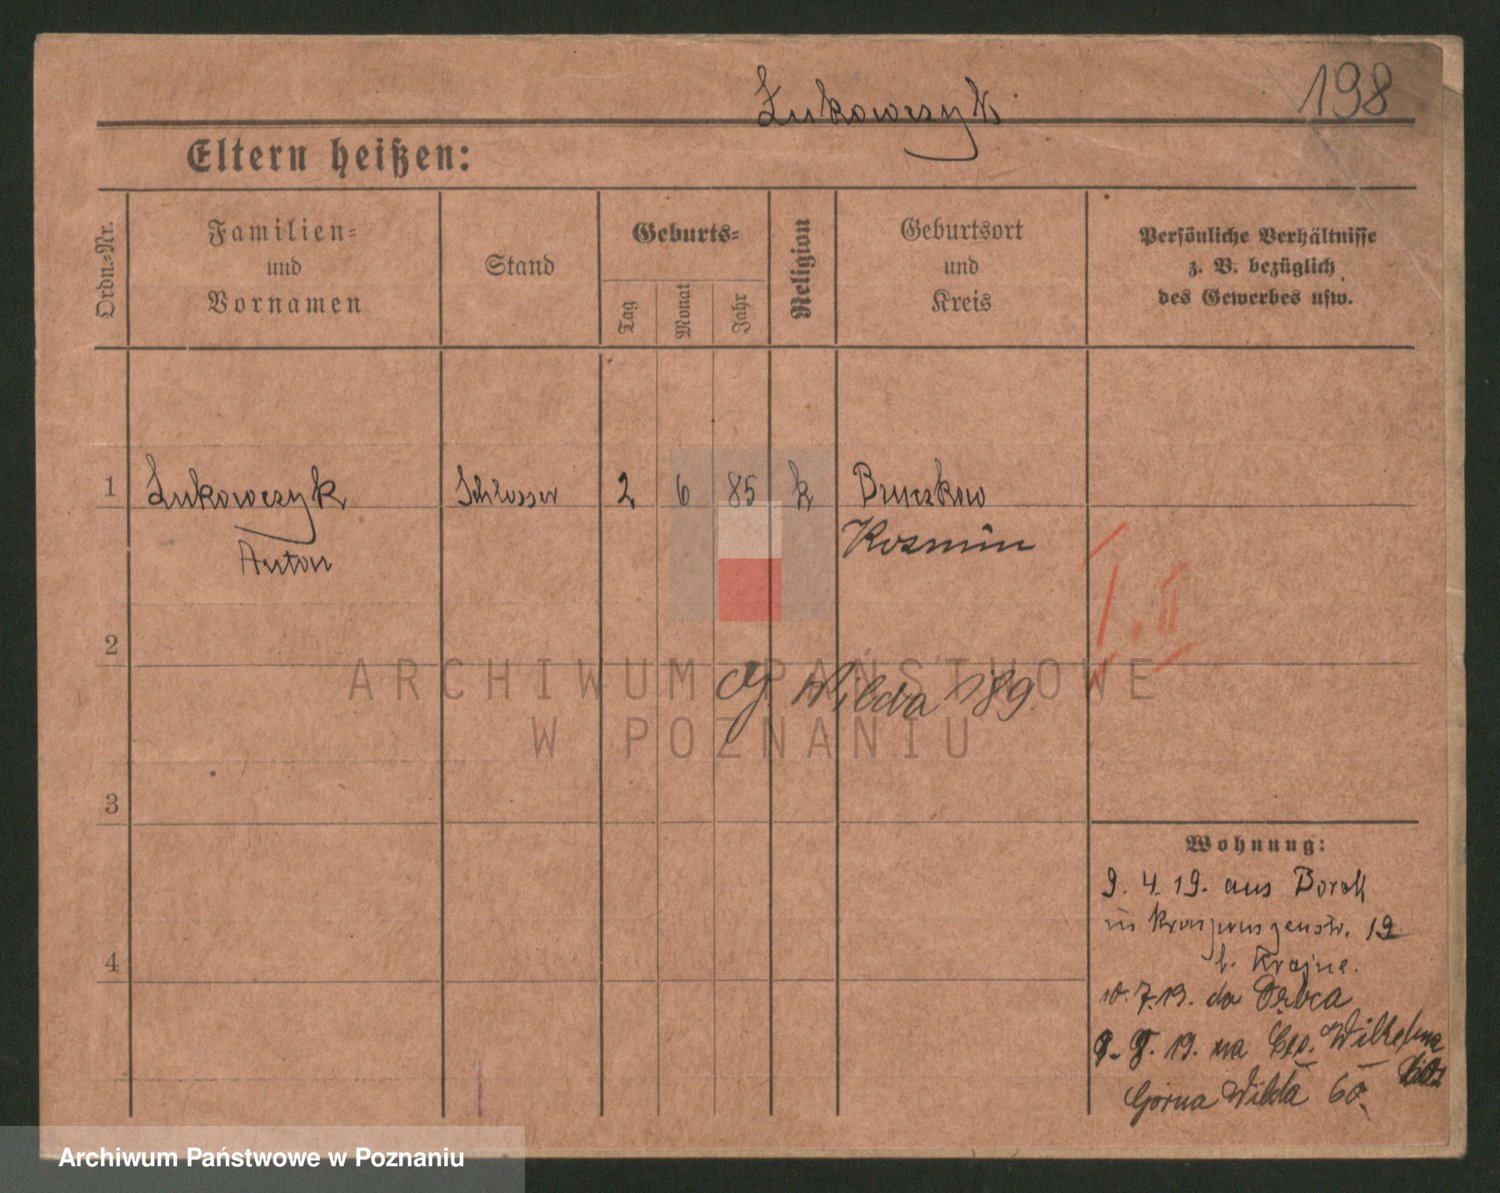 Łukowczyk
198
Eltern heißen:
Ordn.-Nr.
Familien-
und
Vornamen
Stand
Geburts-
Tag
Monat
Jahr
Religion
Geburtsort
und
Kreis
Persönliche Verhältnisse
z. B. bezüglich
des Gewerbes usw.
1 Łukowczyk Schlosser 2 6 85 k Bruczkow
Anton Kosmin
I. II
2
G. Wilda 189.
ARCHIWUM PAŃSTWOWE
W POZNANIU
3
Wohnung:
9. 4. 19. aus Borek
in Kronprinzenstr. 19
b. Krajne.
10. 7. 19. do
19. na Ces. Wilhelma
4
Górna Wilda 60.
Archiwum Państwowe w Poznaniu